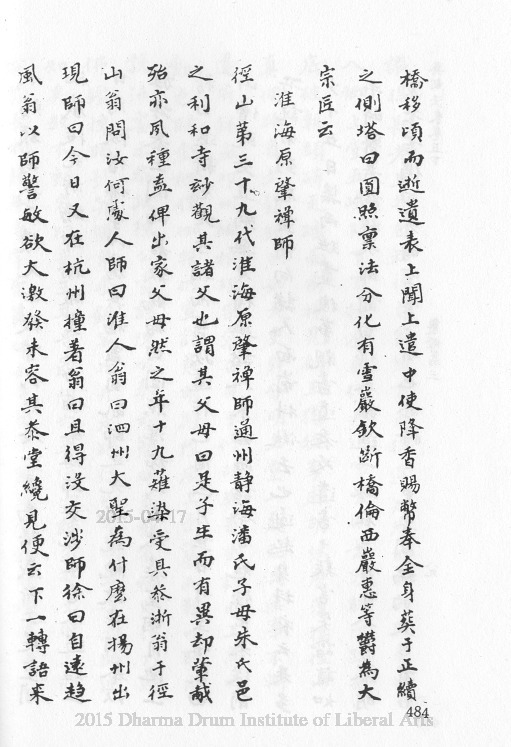 橋移頃而逝遺表上聞上遣中使降香賜幣奉全身葬于正續
之側塔曰圓照稟法分化有雪巖欽斷橋倫西巖惠等欝為大
宗匠云
淮海原肇禪師
徑山第三十九代淮海原肇禪師通州静海潘氏子母朱氏邑
之利和寺玅觀其諸父也謂其父母曰是子生而有異却葷胾
殆亦夙種盍俾出家父母然之年十九薙染受具叅浙翁于徑
山翁問汝何處人師曰淮人翁曰泗州大聖為什麽在揚州出
現師曰今日又在杭州撞著翁曰且得没交涉師徐曰自遠趋
風翁以師警敏欲大激發未容其叅堂纔見便云下一轉語来
484
2015-04-17
2015 Dharma Drum Institute of Liberal Arts